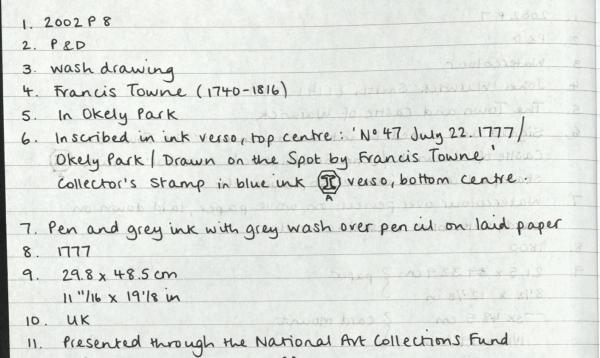 1. 2002 P 8
2. P&D
3. wash drawing
4. Francis Towne (1740-1816)
5. In Okely Park
6. Inscribed in ink verso, top centre: 'Nº 47 July 22. 1777/
Okely Park / Drawn on the Spot by Francis Towne'
Collector's Stamp in blue ink verso, bottom centre.
A
7. Pen and grey ink with grey wash over pencil on laid paper
8. 1777
9. 29.8 x 48.5 cm
11 11/16 x 19 1/8 in
10. UK
11. Presented through the National Art Collections Fund